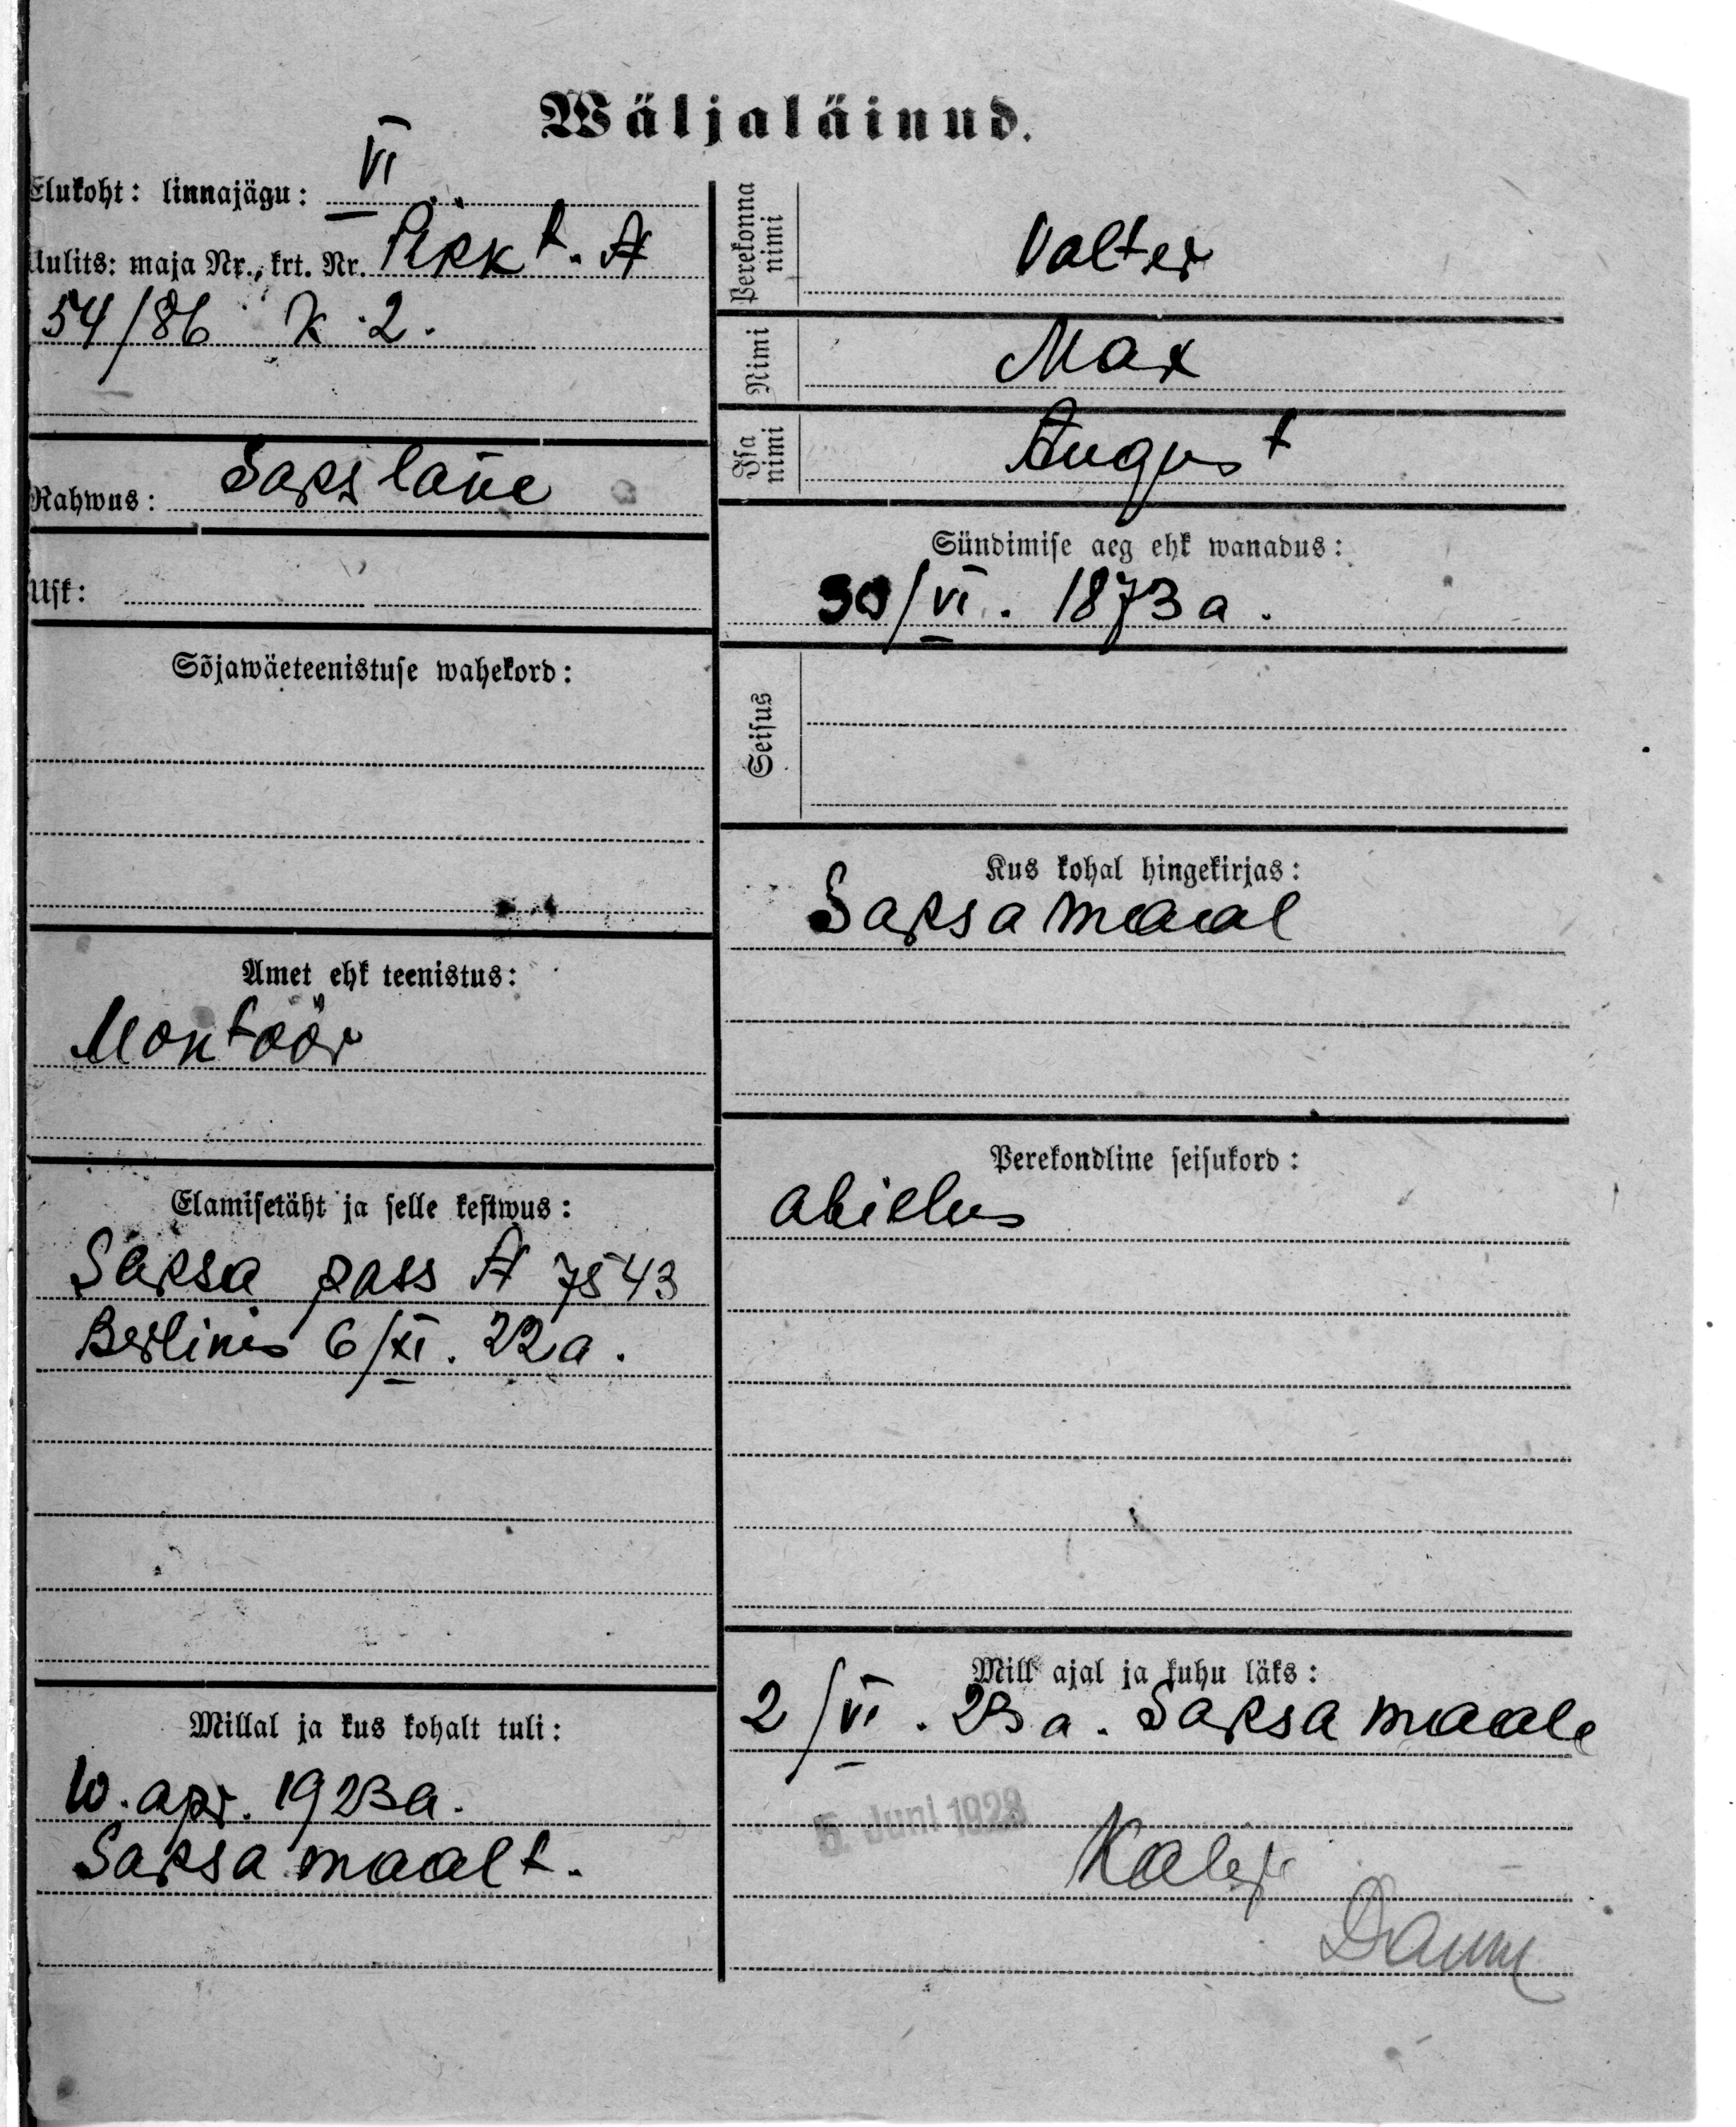 Wäljaläinud.
Elukoht: linnajägu: VI
Uulits: maja Nr., krt. Nr. Pikk t. №
54/86 K. 2.
Rahwus: Sakslane
Usk:
Sõjawäeteenistuse wahekord:
Amet ehk teenistus:
Montöör
Elamisetäht ja selle kestwus:
Saksa pass № 7543
Berlinis 6/XI. 22 a.
Millal ja kus kohalt tuli:
10. apr. 1923 a.
Saksamaalt.
Perekonna nimi
Valter
Nimi
Max
Isa nimi
August
Sündimise aeg ehk wanadus:
30/VI. 1873 a.
Seisus
Kus kohal hingekirjas:
Saksamaal
Perekondline seisukord:
abielus
Mill ajal ja kuhu läks:
2/VI. 23 a. Saksamaale
5. Juni 1923